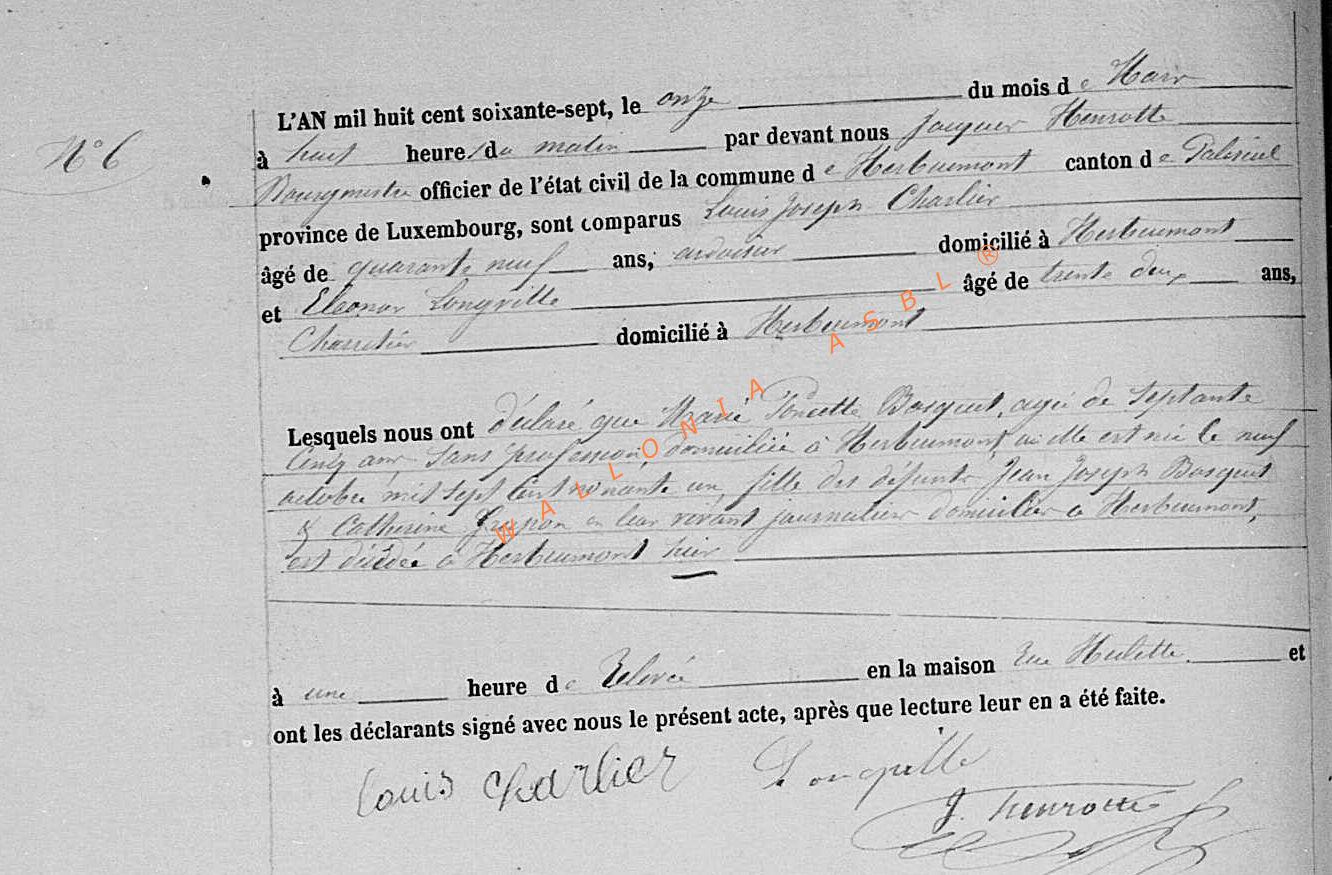 N° 6
L'AN mil huit cent soixante-sept, le onze du mois de Mars
à huit heures du matin par devant nous Jacques Henrotte
Bourgmestre officier de l'état civil de la commune de Herbeumont canton de Paliseul
province de Luxembourg, sont comparus Louis Joseph Charlier
âgé de quarante neuf ans, ardoisier domicilié à Herbeumont
et Eleonor Longville âgé de trente deux ans,
Charretier domicilié à Herbeumont
Lesquels nous ont déclaré que Marie Poncette Bosquet, agée de septante
cinq ans sans profession, domiciliée à Herbeumont, où elle est née le neuf
octobre mil sept cent nonante un, fille des défunts Jean Joseph Bosquet
& Catherine en leur vivant journaliers domiciliés à Herbeumont,
est décédée à Herbeumont hier
à une heure de Relevée en la maison rue et
ont les déclarants signé avec nous le présent acte, après que lecture leur en a été faite.
Louis Charlier Longville
J. Henrotte
WALLONIA ASBL ®